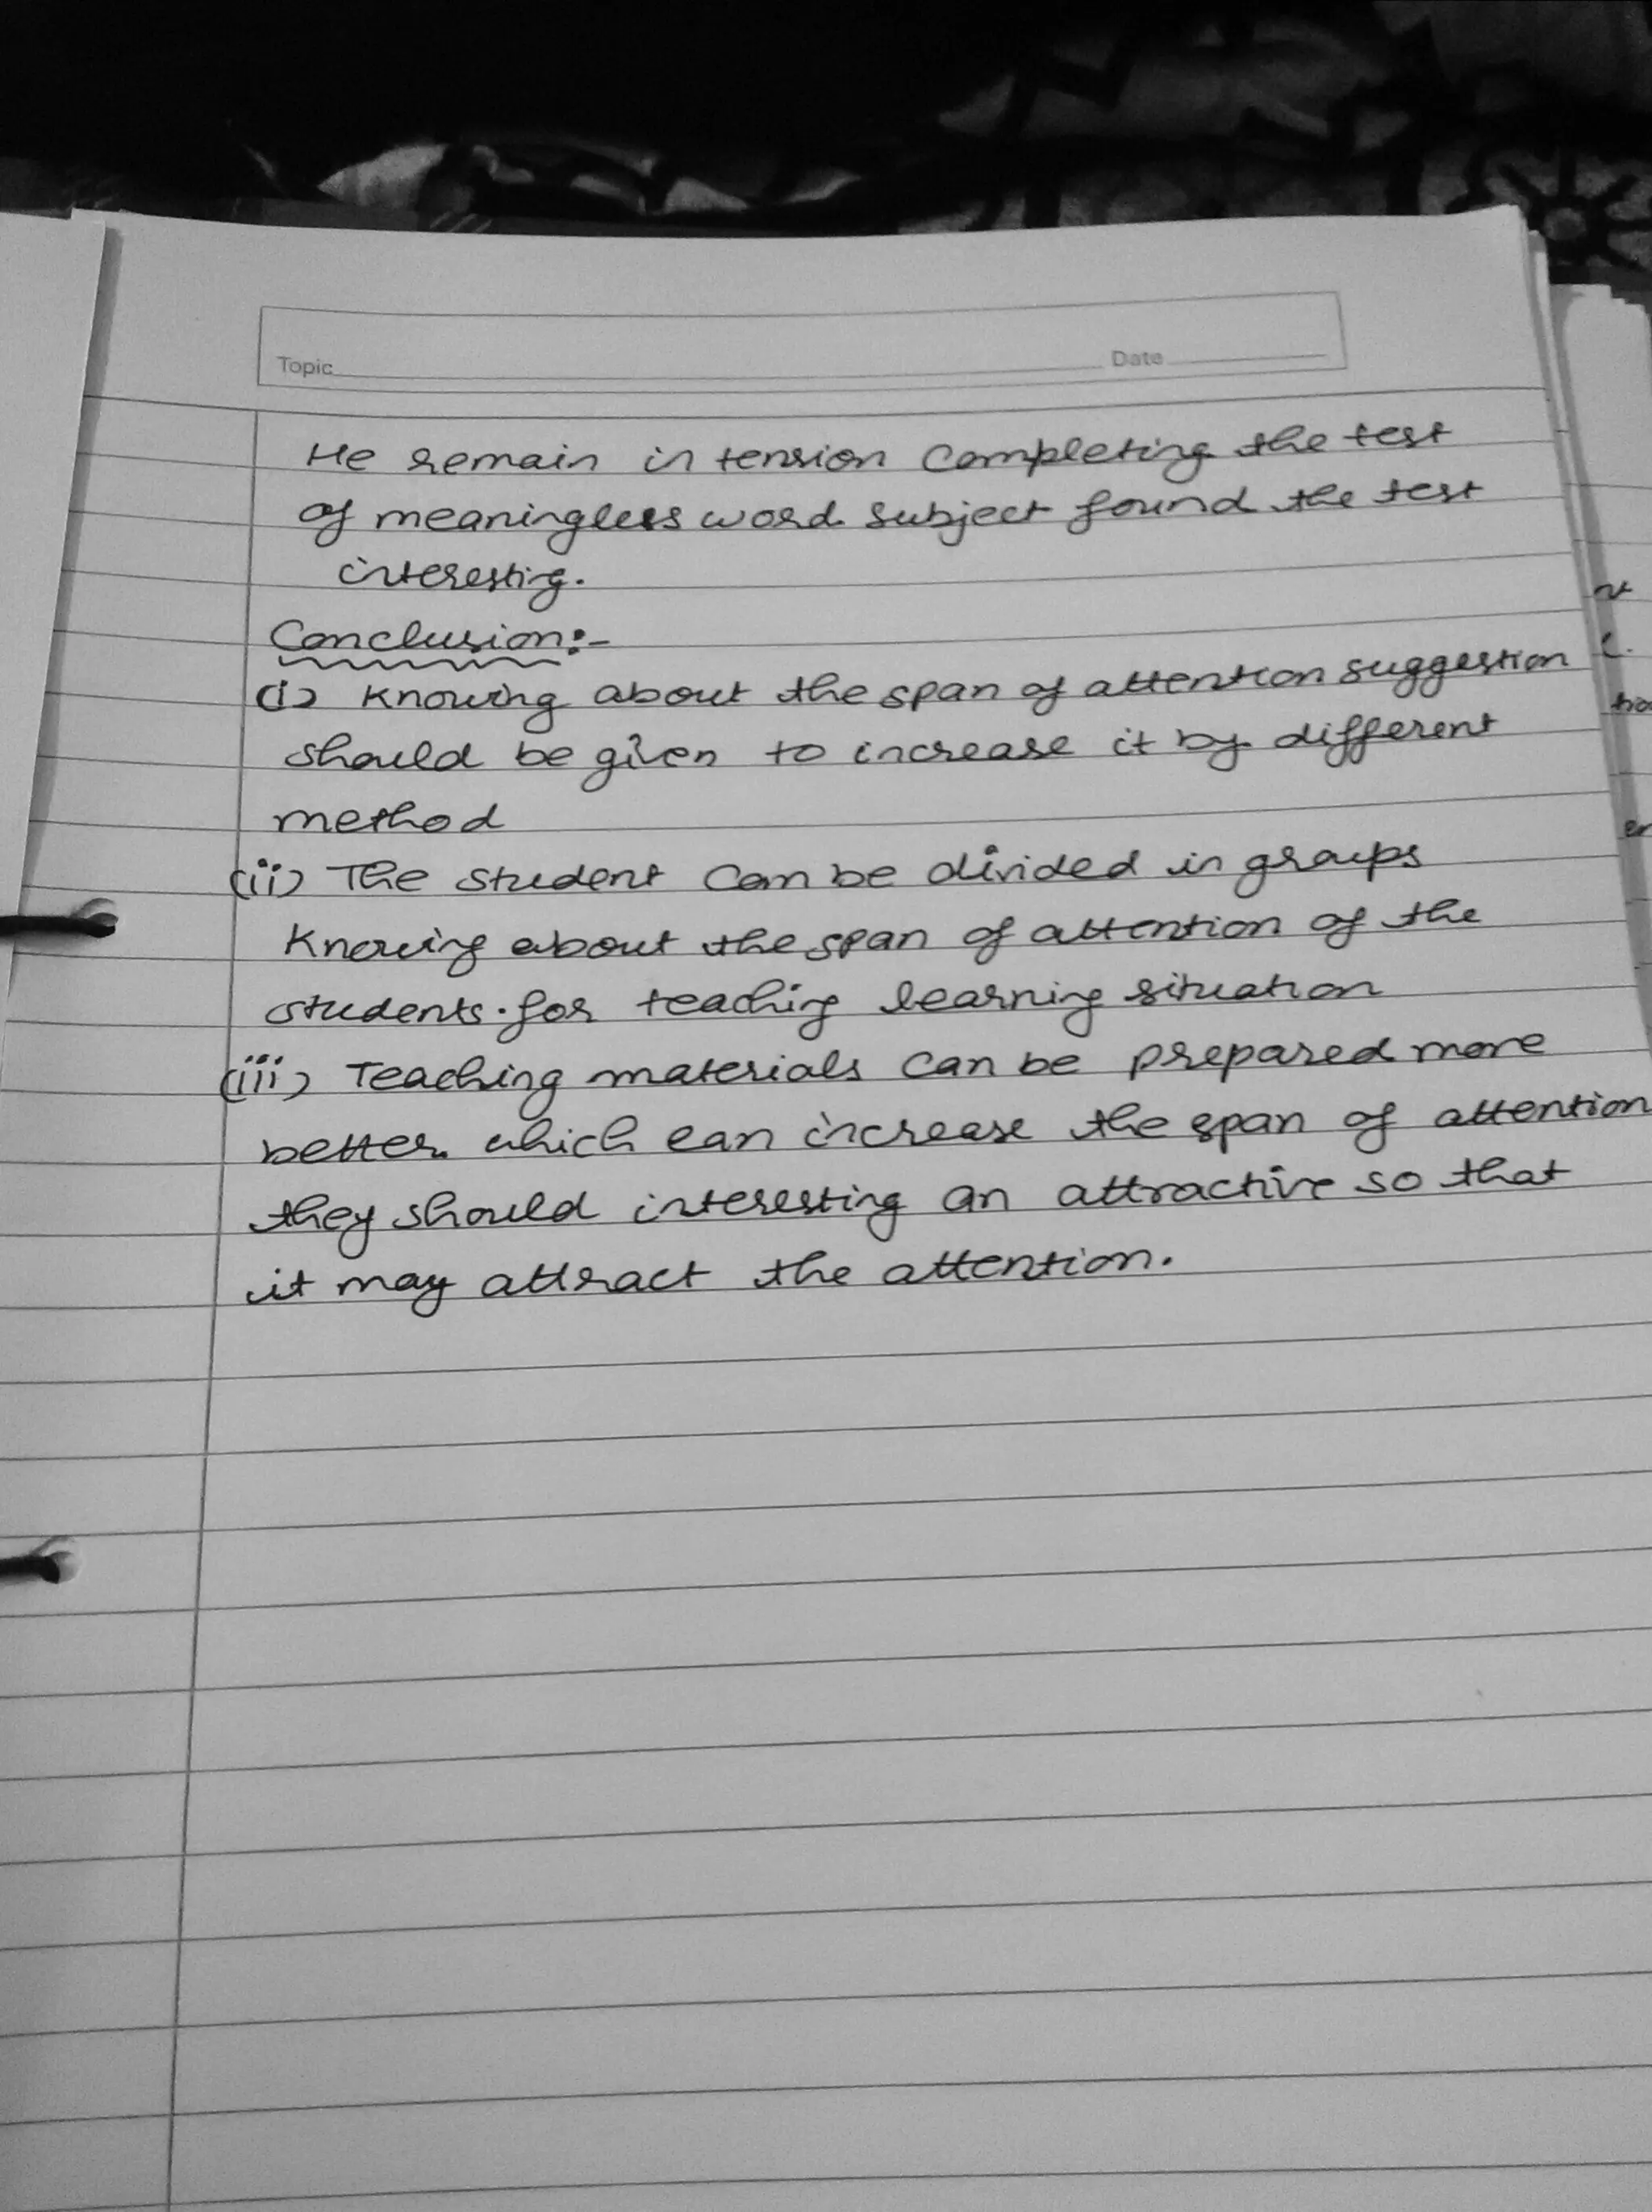 Topic Date
He remain in tension completing the test
of meaningless word. subject found the test
interesting.
Conclusion:-
(i) Knowing about the span of attention suggestion
should be given to increase it by different
method
(ii) The student can be divided in groups
Knowing about the span of attention of the
students. for teaching learning situation
(iii) Teaching materials can be prepared more
better. which can increase the span of attention
they should interesting an attractive so that
it may attract the attention.